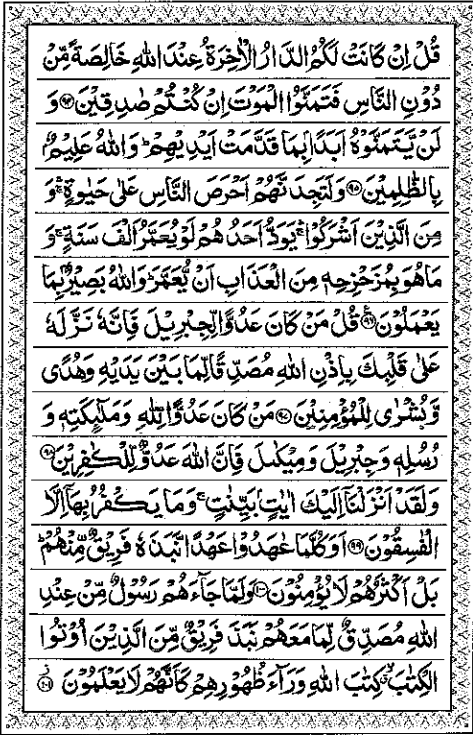 قُلْ اِنْ كَانَتْ لَكُمُ الدَّارُ الْاٰخِرَةُ عِنْدَ اللّٰهِ خَالِصَةً مِّنْ
دُوْنِ النَّاسِ فَتَمَنَّوُا الْمَوْتَ اِنْ كُنْتُمْ صٰدِقِيْنَ ﴿۹۴﴾ وَ
لَنْ يَّتَمَنَّوْهُ اَبَدًۢا بِمَا قَدَّمَتْ اَيْدِيْهِمْ ؕ وَاللّٰهُ عَلِيْمٌۢ
بِالظّٰلِمِيْنَ ﴿۹۵﴾ وَلَتَجِدَنَّهُمْ اَحْرَصَ النَّاسِ عَلٰى حَيٰوةٍ ۛۚ وَ
مِنَ الَّذِيْنَ اَشْرَكُوْا ۛۚ يَوَدُّ اَحَدُهُمْ لَوْ يُعَمَّرُ اَلْفَ سَنَةٍ ۚ وَ
مَا هُوَ بِمُزَحْزِحِهٖ مِنَ الْعَذَابِ اَنْ يُّعَمَّرَ ؕ وَاللّٰهُ بَصِيْرٌۢ بِمَا
يَعْمَلُوْنَ ﴿۹۶﴾ ع قُلْ مَنْ كَانَ عَدُوًّا لِّجِبْرِيْلَ فَاِنَّهٗ نَزَّلَهٗ
عَلٰى قَلْبِكَ بِاِذْنِ اللّٰهِ مُصَدِّقًا لِّمَا بَيْنَ يَدَيْهِ وَهُدًى
وَّبُشْرٰى لِلْمُؤْمِنِيْنَ ﴿۹۷﴾ مَنْ كَانَ عَدُوًّا لِّلّٰهِ وَمَلٰٓئِكَتِهٖ وَ
رُسُلِهٖ وَجِبْرِيْلَ وَمِيْكٰىلَ فَاِنَّ اللّٰهَ عَدُوٌّ لِّلْكٰفِرِيْنَ ﴿۹۸﴾
وَلَقَدْ اَنْزَلْنَاۤ اِلَيْكَ اٰيٰتٍۭ بَيِّنٰتٍ ۚ وَمَا يَكْفُرُ بِهَاۤ اِلَّا
الْفٰسِقُوْنَ ﴿۹۹﴾ اَوَكُلَّمَا عٰهَدُوْا عَهْدًا نَّبَذَهٗ فَرِيْقٌ مِّنْهُمْ ؕ
بَلْ اَكْثَرُهُمْ لَا يُؤْمِنُوْنَ ﴿۱۰۰﴾ وَلَمَّا جَآءَهُمْ رَسُوْلٌ مِّنْ عِنْدِ
اللّٰهِ مُصَدِّقٌ لِّمَا مَعَهُمْ نَبَذَ فَرِيْقٌ مِّنَ الَّذِيْنَ اُوْتُوا
الْكِتٰبَ ۙ كِتٰبَ اللّٰهِ وَرَآءَ ظُهُوْرِهِمْ كَاَنَّهُمْ لَا يَعْلَمُوْنَ ﴿۱۰۱﴾